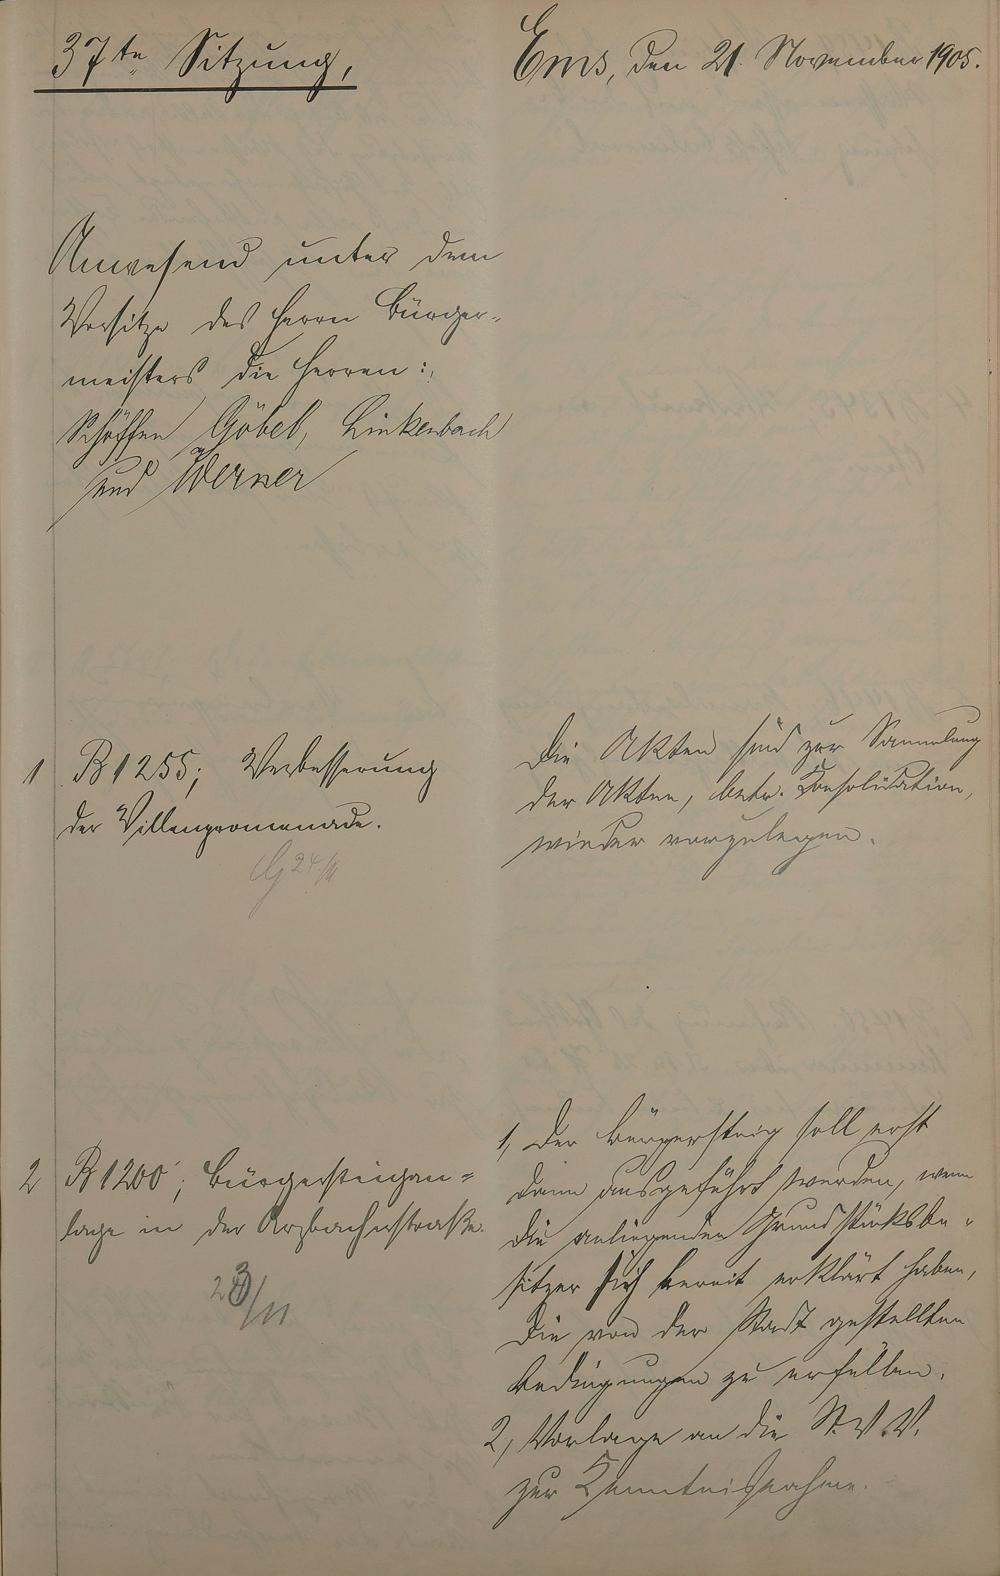 37te Sitzung,
Ems, den 21. November 1905.
Anwesend unter dem
Vorsitze des Herrn Bürger-
meisters die Herren:
Schöffen Göbel, Linkenbach
und Werner
1 B 1255; Verbesserung
der Villenpromenade.
24/11
Die Akten sind zur Sammlung
der Akten, betr. Consolidation,
wieder vorzulegen.
2 B 1200; Bürgersteigan-
lage in der Arzbacherstraße.
23/11
1, Der Bürgersteig soll erst
dann ausgeführt werden, wenn
die anliegenden Grundstücksbe-
sitzer sich bereit erklärt haben,
die von der Stadt gestellten
Bedingungen zu erfüllen.
2, Vorlage an die St. V. V.
zur Kenntnisnahme.